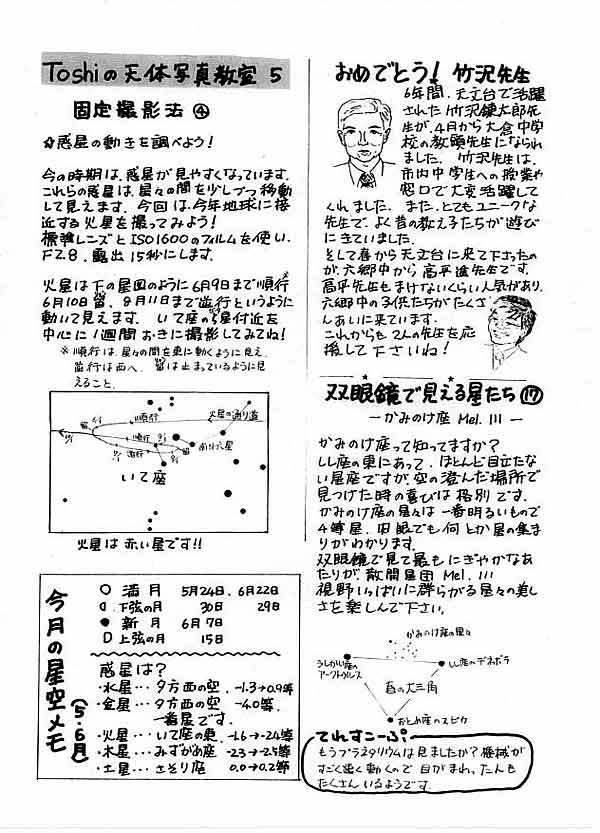 Toshiの天体写真教室 5
固定撮影法 ④
☆惑星の動きを調べよう!
今の時期は、惑星が見やすくなっています。
これらの惑星は、星々の間を少しづつ移動
して見えます。今回は、今年地球に接
近する火星を撮ってみよう!
標準レンズとISO1600のフィルムを使い、
F2.8、露出15秒にします。
火星は下の星図のように6月9日まで順行※
6月10日留、9月11日まで逆行というように
動いて見えます。いて座の付近を
中心に1週間おきに撮影してみてね!
※順行は、星々の間を東に動くように見え、
逆行は西へ、留は止まっているように見
えること。
火星の通り道
順行
留
逆行
順行
逆行
留
南斗六星
いて座
火星は赤い星です!!
今月の星空メモ
(5・6月)
○ 満月 5月24日、6月22日
下弦の月 30日 29日
● 新月 6月7日
D 上弦の月 15日
惑星は?
・水星… 夕方西の空、-1.3→0.9等
・金星… 夕方西の空、-4.0等、
一番星です。
・火星… いて座の東、-1.6→-2.4等
・木星… みずがめ座 -2.3→-2.5等
・土星… さそり座 0.0→0.2等
おめでとう! 竹沢先生
6年間、天文台で活躍
された竹沢錬太郎先
生が、4月から大倉中学
校の教頭先生になられ
ました。竹沢先生は、
市内中学生への授業や
窓口で大変活躍して
くれました。また、とてもユニークな
先生で、よく昔の教え子たちが遊び
にきていました。
そして春から天文台に来て下さったの
が、六郷中から高平進先生です。
高平先生もまけないくらい人気があり、
六郷中の子供たちがたくさ
んあいに来ています。
これからも2人の先生を応
援して下さいね!
双眼鏡で見える星たち ⑰
ーかみのけ座 Mel. 111ー
かみのけ座って知ってますか?
しし座の東にあって、ほとんど目立たな
い星座ですが、空の澄んだ場所で
見つけた時の喜びは格別です。
かみのけ座の星々は一番明るいもので
4等星、肉眼でも何とか星の集ま
りがわかります。
双眼鏡で見て最もにぎやかなあ
たりが、散開星団 Mel. 111
視野いっぱいに群らがる星々の美し
さを楽しんで下さい。
かみのけ座の星々
うしかい座の
アークトゥルス
しし座のデネボラ
春の大三角
おとめ座のスピカ
てれすこーぷ
もうプラネタリウムは見ましたか?機械が
すごく速く動くので目がまわった人も
たくさんいるようです。